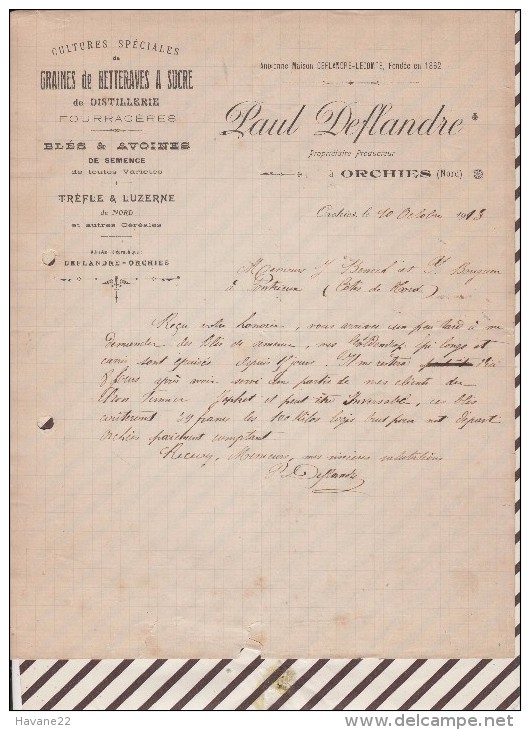 CULTURES SPÉCIALES
de
GRAINES de BETTERAVES A SUCRE
de DISTILLERIE
FOURRAGÈRES
BLÉS & AVOINES
DE SEMENCE
de toutes Variétés
TRÈFLE & LUZERNE
du NORD
et autres Céréales
DEFLANDRE-ORCHIES
Ancienne Maison DEFLANDRE-LECOMTE, Fondée en 1862
Paul Deflandre
Propriétaire Producteur
à ORCHIES (Nord)
Orchies, le 10 Octobre 1913
Messieurs J Benard et
à Pontrieux (Côtes du Nord)
Reçu votre honorée, vous arrivez un peu tard à me
demander des blés de semence, nos
sont épuisés depuis jours. Il me restera
après avoir servi une partie de nos clients du
et peut être Inversable, ces blés
coûteront 29 francs les 100 kilos logés brut pour net départ
Orchies paiement comptant
Recevez, Messieurs, mes sincères salutations
P. Deflandre
Havane22
www.delcampe.net